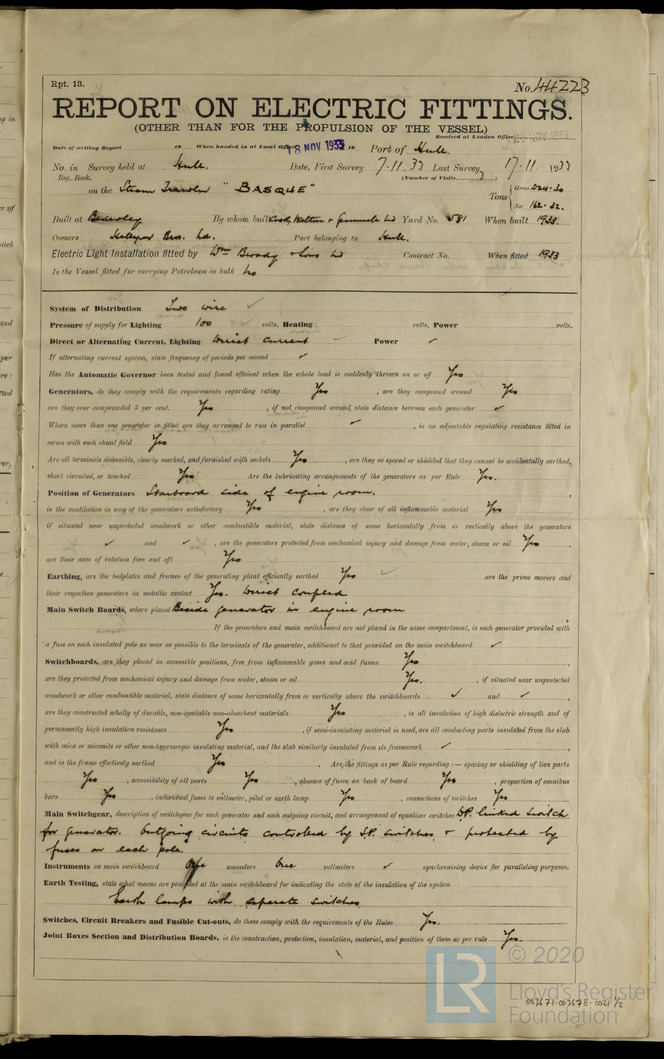 Rpt. 13.
No. 44223
REPORT ON ELECTRIC FITTINGS.
(OTHER THAN FOR THE PROPULSION OF THE VESSEL)
Received at London Office 20 NOV 1933
Date of writing Report 19 When handed in at Local Office 18 NOV 1933 19 Port of Hull.
No. in Survey held at Hull. Date, First Survey 7-11-33 Last Survey 17-11 1933
Reg. Book. (Number of Visits 3)
on the Steam Trawler "BASQUE" Tons { Gross 424.30
Net 162.32
Built at Beverley By whom built Cook, Welton & Gemmell Ld Yard No. 581 When built 1933.
Owners Hellyer Bros. Ld. Port belonging to Hull.
Electric Light Installation fitted by Wm Broady & Sons Ld Contract No. When fitted 1933
Is the Vessel fitted for carrying Petroleum in bulk No
System of Distribution Two wire ✓
Pressure of supply for Lighting 100 ✓ volts, Heating volts, Power volts.
Direct or Alternating Current, Lighting Direct Current Power ✓
If alternating current system, state frequency of periods per second ✓
Has the Automatic Governor been tested and found efficient when the whole load is suddenly thrown on or off Yes
Generators, do they comply with the requirements regarding rating Yes, are they compound wound Yes
are they over compounded 5 per cent. Yes, if not compound wound state distance between each generator ✓
Where more than one generator is fitted are they arranged to run in parallel ✓, is an adjustable regulating resistance fitted in
series with each shunt field Yes
Are all terminals accessible, clearly marked, and furnished with sockets Yes, are they so spaced or shielded that they cannot be accidentally earthed,
short circuited, or touched Yes Are the lubricating arrangements of the generators as per Rule Yes.
Position of Generators Starboard side of engine room.
is the ventilation in way of the generators satisfactory Yes, are they clear of all inflammable material Yes
if situated near unprotected woodwork or other combustible material, state distance of same horizontally from or vertically above the generators
✓ and ✓, are the generators protected from mechanical injury and damage from water, steam or oil Yes,
are their axes of rotation fore and aft Yes
Earthing, are the bedplates and frames of the generating plant efficiently earthed Yes ✓ are the prime movers and
their respective generators in metallic contact Yes. Direct coupled
Main Switch Boards, where placed Beside generator in engine room
If the generators and main switchboard are not placed in the same compartment, is each generator provided with
a fuse on each insulated pole as near as possible to the terminals of the generator, additional to that provided on the main switchboard ✓
Switchboards, are they placed in accessible positions, free from inflammable gases and acid fumes Yes,
are they protected from mechanical injury and damage from water, steam or oil Yes., if situated near unprotected
woodwork or other combustible material, state distance of same horizontally from or vertically above the switchboards ✓ and ✓,
are they constructed wholly of durable, non-ignitable non-absorbent materials Yes, is all insulation of high dielectric strength and of
permanently high insulation resistance Yes, if semi-insulating material is used, are all conducting parts insulated from the slab
with mica or micanite or other non-hygroscopic insulating material, and the slab similarly insulated from its framework ✓,
and is the frame effectively earthed Yes. Are the fittings as per Rule regarding :— spacing or shielding of live parts
Yes, accessibility of all parts Yes, absence of fuses on back of board Yes, proportion of omnibus
bars Yes, individual fuses to voltmeter, pilot or earth lamp Yes, connections of switches Yes
Main Switchgear, description of switchgear for each generator and each outgoing circuit, and arrangement of equalizer switches D.P. linked switch
for generator. Outgoing circuits controlled by S.P. switches & protected by
fuses on each pole.
Instruments on main switchboard One ammeters One voltmeters ✓ synchronising device for paralleling purposes.
Earth Testing, state what means are provided at the main switchboard for indicating the state of the insulation of the system
Earth lamps with separate switches
Switches, Circuit Breakers and Fusible Cut-outs, do these comply with the requirements of the Rules Yes.
Joint Boxes Section and Distribution Boards, is the construction, protection, insulation, material, and position of these as per rule Yes.
© 2020
LR
Lloyd's Register
Foundation
003671-003678-0021 1/2